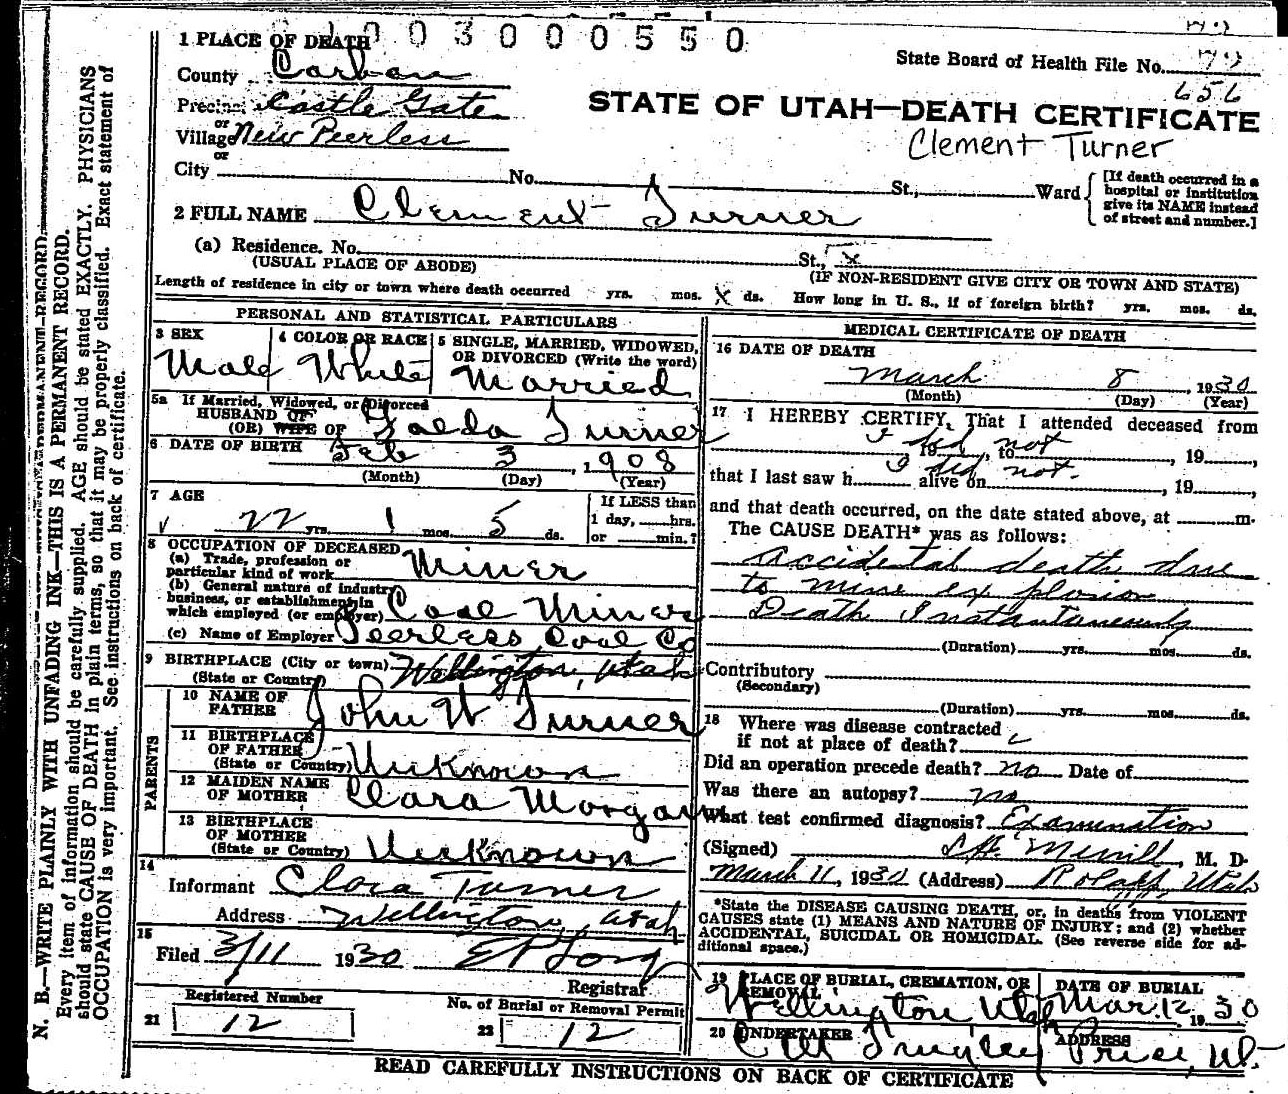 1003000550
1 PLACE OF DEATH
State Board of Health File No. 72
656
County Carbon
Precinct Castle Gate
STATE OF UTAH—DEATH CERTIFICATE
or
Village New Peerless
Clement Turner
or
City No. St., Ward
[If death occurred in a hospital or institution give its NAME instead of street and number.]
2 FULL NAME Clement Turner
(a) Residence. No. St., x
(USUAL PLACE OF ABODE) (IF NON-RESIDENT GIVE CITY OR TOWN AND STATE)
Length of residence in city or town where death occurred yrs. mos. X ds. How long in U. S., if of foreign birth? yrs. mos. ds.
PERSONAL AND STATISTICAL PARTICULARS
3 SEX 4 COLOR OR RACE 5 SINGLE, MARRIED, WIDOWED, OR DIVORCED (Write the word)
Male White Married
5a If Married, Widowed, or Divorced
HUSBAND OF
(OR) WIFE OF Turner
6 DATE OF BIRTH Feb 3, 1908
(Month) (Day) (Year)
7 AGE If LESS than
22 yrs. 1 mos. 5 ds. 1 day, hrs. or min.?
8 OCCUPATION OF DECEASED
(a) Trade, profession or particular kind of work Miner
(b) General nature of industry, business, or establishment in which employed (or employer) Coal Miner
(c) Name of Employer Peerless Coal Co
9 BIRTHPLACE (City or town) Wellington, Utah
(State or Country)
PARENTS
10 NAME OF FATHER John W Turner
11 BIRTHPLACE OF FATHER (State or Country) Unknown
12 MAIDEN NAME OF MOTHER Clara Morgan
13 BIRTHPLACE OF MOTHER (State or Country) Unknown
14
Informant Clara Turner
Address Wellington, Utah
15
Filed 3/11 1930
Registrar
Registered Number No. of Burial or Removal Permit
21 12 22 12
MEDICAL CERTIFICATE OF DEATH
16 DATE OF DEATH
March 8, 1930
(Month) (Day) (Year)
17 I HEREBY CERTIFY, That I attended deceased from
I did not
19, to , 19
I did not.
that I last saw h alive on , 19
and that death occurred, on the date stated above, at m.
The CAUSE DEATH* was as follows:
accidental death due
to mine explosion
Death Instantaneously
(Duration) yrs. mos. ds.
Contributory
(Secondary)
(Duration) yrs. mos. ds.
18 Where was disease contracted
if not at place of death?
Did an operation precede death? no Date of
Was there an autopsy? no
What test confirmed diagnosis? Examination
(Signed) Merrill, M. D.
March 11, 1930 (Address) Rolapp, Utah
*State the DISEASE CAUSING DEATH, or, in deaths from VIOLENT
CAUSES state (1) MEANS AND NATURE OF INJURY; and (2) whether
ACCIDENTAL, SUICIDAL OR HOMICIDAL. (See reverse side for ad-
ditional space.)
19 PLACE OF BURIAL, CREMATION, OR REMOVAL DATE OF BURIAL
Wellington Utah Mar. 12 1930
20 UNDERTAKER ADDRESS
Price, Ut.
READ CAREFULLY INSTRUCTIONS ON BACK OF CERTIFICATE
N. B.—WRITE PLAINLY WITH UNFADING INK—THIS IS A PERMANENT RECORD.
Every item of information should be carefully supplied. AGE should be stated EXACTLY. PHYSICIANS
should state CAUSE OF DEATH in plain terms, so that it may be properly classified. Exact statement of
OCCUPATION is very important. See instructions on back of certificate.